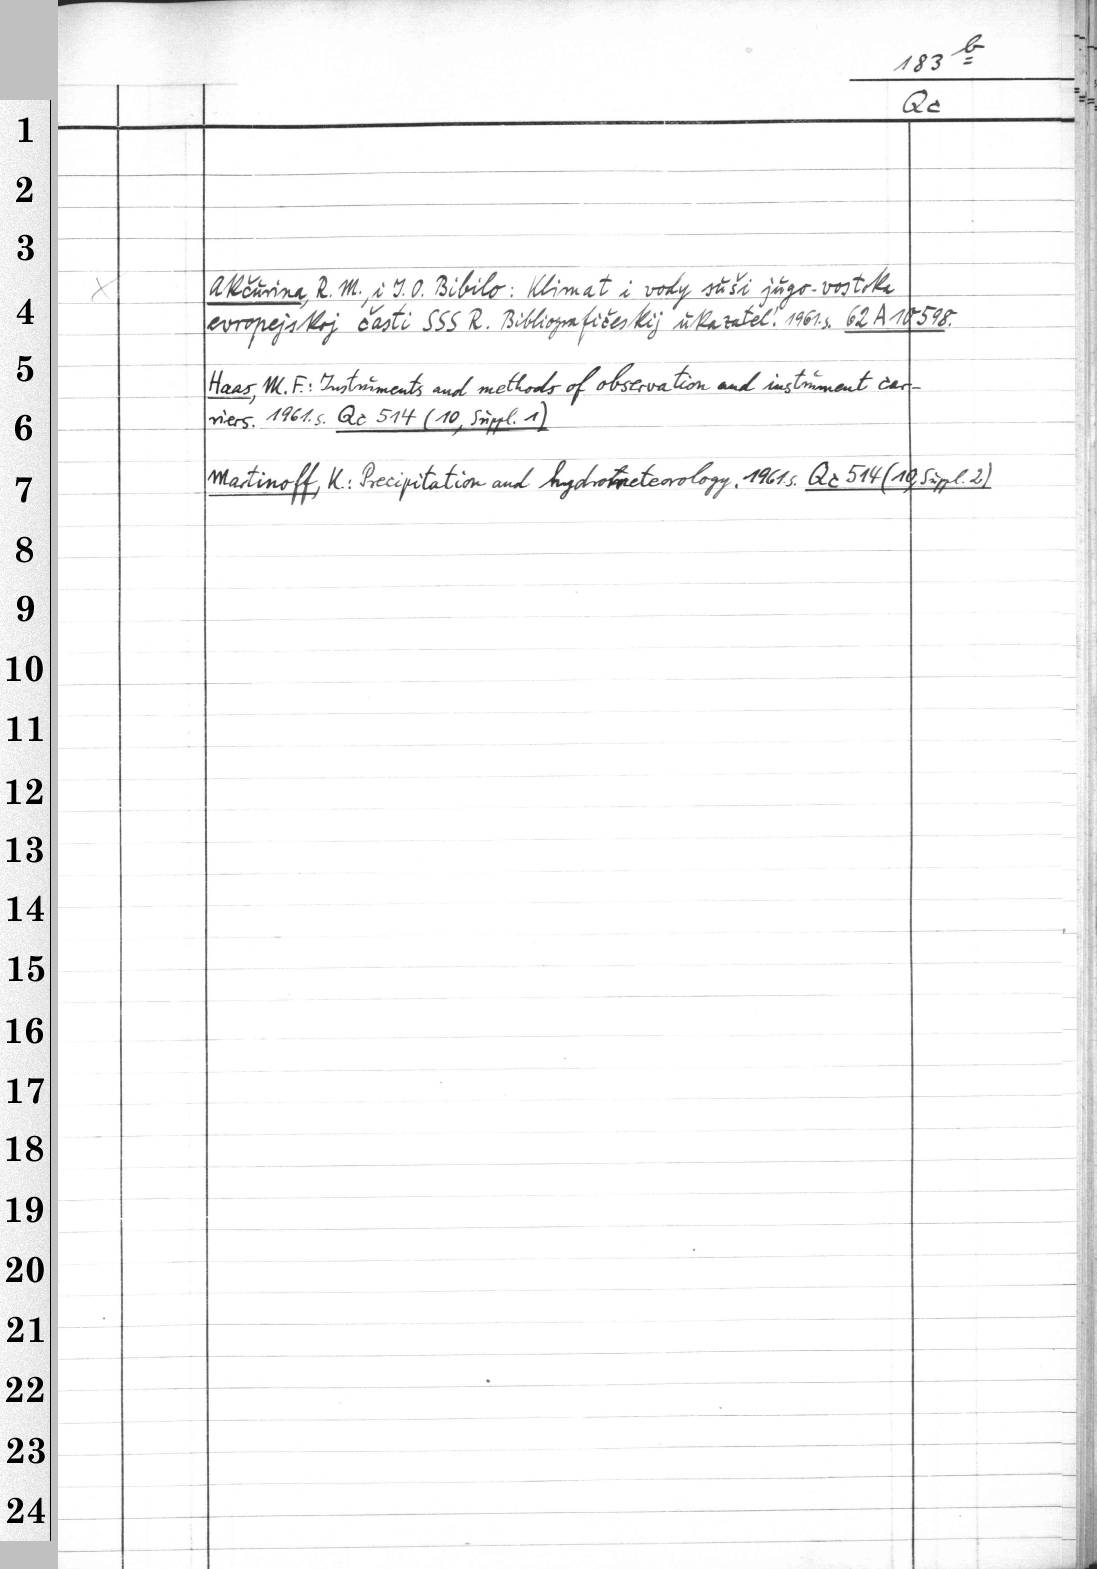 183 b
Qc
1
2
3
4
5
6
7
8
9
10
11
12
13
14
15
16
17
18
19
20
21
22
23
24
Akčurina, R. M., i I. O. Bibilo: Klimat i vody suši jugo-vostoka
evropejskoj časti SSSR. Bibliografičeskij ukazatel'. 1961. s. 62 A 10598.
Haas, M. F.: Instruments and methods of observation and instrument car-
riers. 1961. s. Qc 514 (10, Suppl. 1)
Martinoff, K.: Precipitation and hydrometeorology. 1961. s. Qc 514 (10, Suppl. 2)